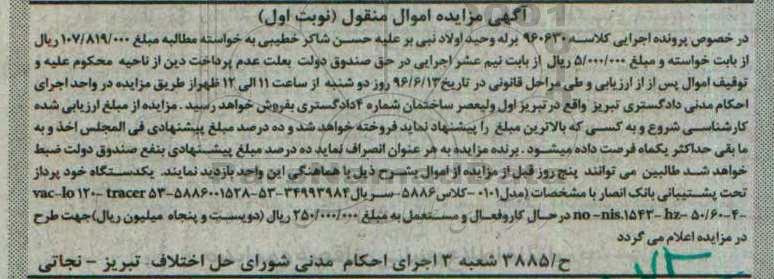 آگهی مزایده اموال منقول (نوبت اول)
در خصوص پرونده اجرایی کلاسه ۹۶۰۶۳۰ برله وحید اولاد نبی بر علیه حسن شاکر خطیبی به خواسته مطالبه مبلغ ۱۰۷/۸۱۹/۰۰۰ ریال
از بابت خواسته و مبلغ ۵/۰۰۰/۰۰۰ ریال از بابت نیم عشر اجرایی در حق صندوق دولت بعلت عدم پرداخت دین از ناحیه محکوم علیه و
توقیف اموال پس از از ارزیابی و طی مراحل قانونی در تاریخ ۹۶/۶/۱۳ روز دو شنبه از ساعت ۱۱ الی ۱۲ ظهر از طریق مزایده در واحد اجرای
احکام مدنی دادگستری تبریز واقع در تبریز اول ولیعصر ساختمان شماره ۴ دادگستری بفروش خواهد رسید . مزایده از مبلغ ارزیابی شده
کارشناسی شروع و به کسی که بالاترین مبلغ را پیشنهاد نماید فروخته خواهد شد و ده درصد مبلغ پیشنهادی فی المجلس اخذ و به
ما بقی حداکثر یکماه فرصت داده میشود . برنده مزایده به هر عنوان انصراف نماید ده درصد مبلغ پیشنهادی بنفع صندوق دولت ضبط
خواهد شد طالبین می توانند پنج روز قبل از مزایده از اموال بشرح ذیل با هماهنگی این واحد بازدید نمایند. یکدستگاه خود پرداز
تحت پشتیبانی بانک انصار با مشخصات (مدل ۰۱۰۱-کلاس ۵۸۸۶-سریال ۳۴۹۹۳۹۸۴-۵۳-۵۸۸۶۰۰۱۵۲۸-۵۳ vac-lo ۱۲۰- tracer
۵۰/۶۰-۴- no -nis.۱۵۴۳- hz- در حال کار و فعال و مستعمل به مبلغ ۲۵۰/۰۰۰/۰۰۰ ریال (دویست و پنجاه میلیون ریال) جهت طرح
در مزایده اعلام می گردد
ح/۳۸۸۵ شعبه ۳ اجرای احکام مدنی شورای حل اختلاف تبریز - نجاتی